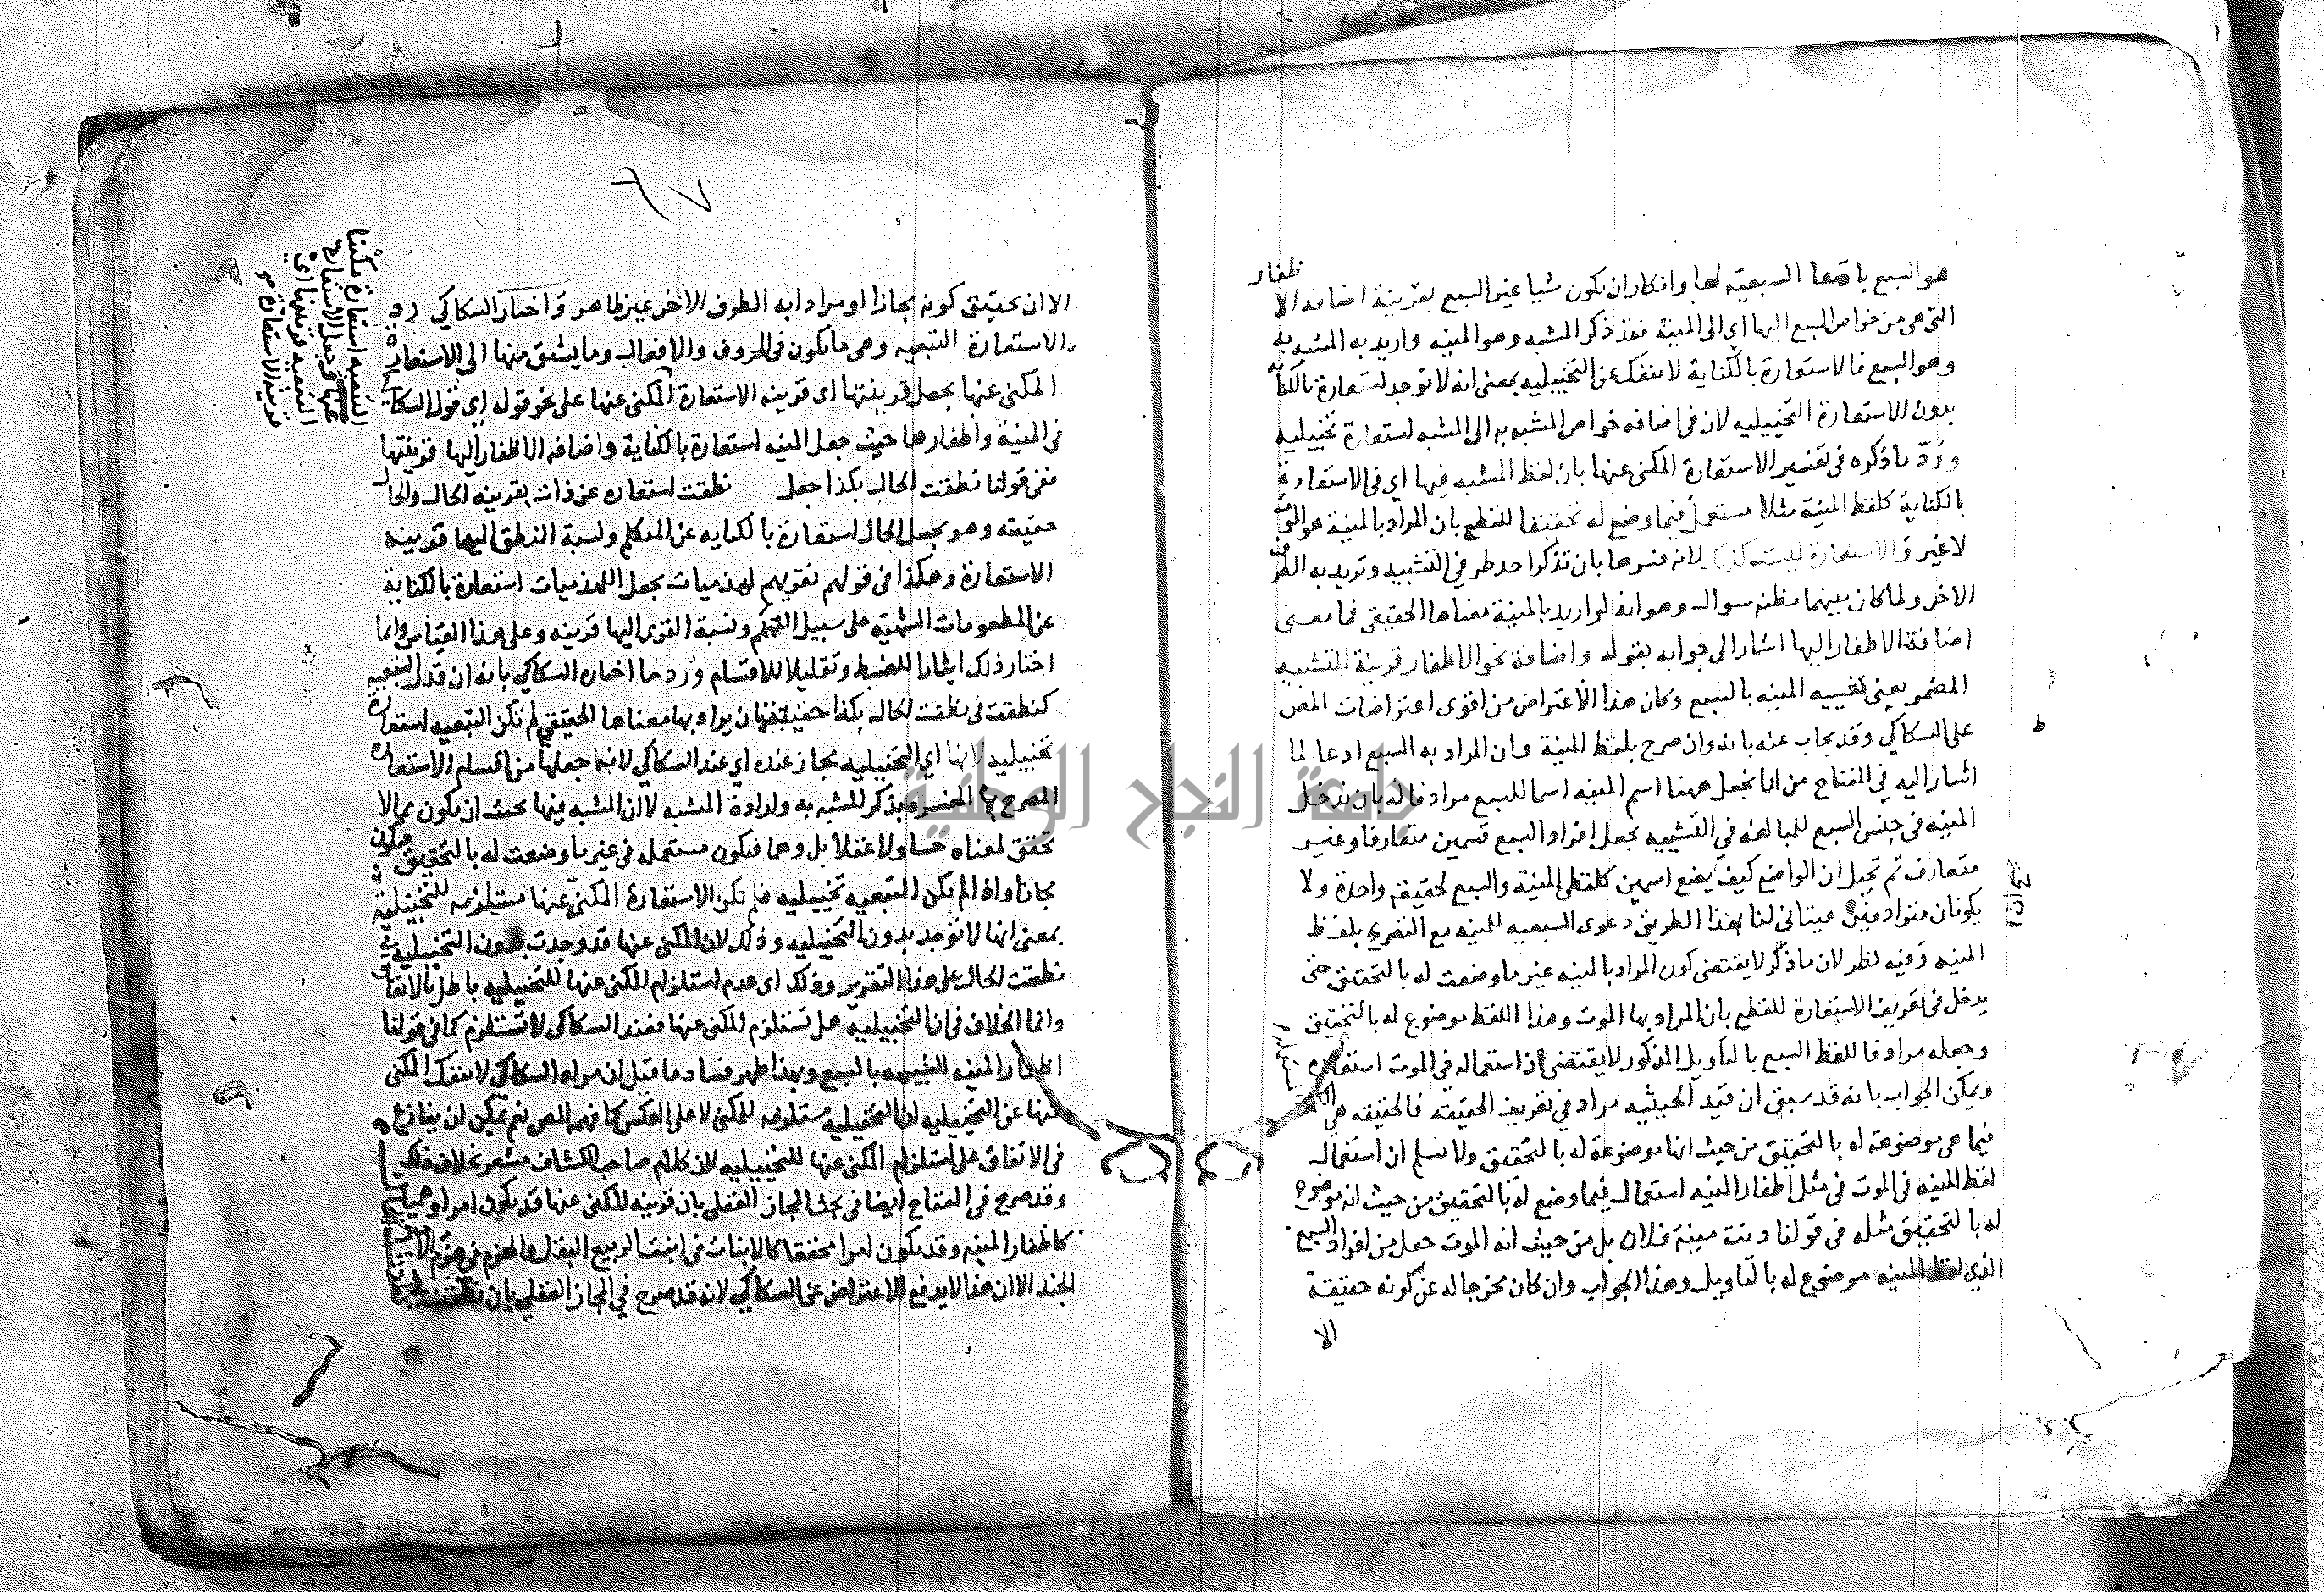 هو السبع بادعا السبعية لها وانكار ان يكون شيا غير السبع بقرينة اضافة الاظفار
التي هي من خواص السبع اليها اي الى المنية فقد ذكر المشبه وهو المنيه واريد به المشبه به
وهو السبع فالاستعارة بالكناية لا تنفك عن التخييليه بمعنى انه لا توجد استعارة بالكناية
بدون الاستعارة التخييليه لان في اضافه خواص المشبه به الى المشبه استعارة تخييليه
ورد ما ذكره في تفسير الاستعارة المكنى عنها بان لفظ المشبه فيها اي في الاستعارة
بالكناية كلفظ المنية مثلا مستعمل فيما وضع له تحقيقا للقطع بان المراد بالمنية هو الموت
لا غير والاستعارة ليست كذلك لانه فسرها بان تذكر احد طرفي التشبيه وتريد به الطرف
الاخر ولما كان بينهما مظنه سوال وهو انه لو اريد بالمنية معناها الحقيقي فما معنى
اضافة الاظفار اليها اشار الى جوابه بقوله واضافة نحو الاظفار قرينة التشبيه
المضمر يعني تشبيه المنيه بالسبع وكان هذا الاعتراض من اقوى اعتراضات المص
على السكاكي وقد يجاب عنه بانه وان صرح بلفظ المنية وان المراد به السبع ادعا لما
اشار اليه في المفتاح من انا نجعل ههنا اسم المنيه اسما للسبع مرادفا له بان ندخل
المنيه في جنس السبع للمبالغه في التشبيه بجعل افراد السبع قسمين متعارفا وغير
متعارف ثم نخيل ان الواضع كيف يضع اسمين كلفظي المنية والسبع لحقيقه واحدة ولا
يكونان مترادفين فيتاتى لنا بهذا الطريق دعوى السبعيه للمنيه مع التصريح بلفظ
المنيه وفيه نظر لان ما ذكر لا يقتضي كون المراد بالمنيه غير ما وضعت له بالتحقيق حتى
يدخل في تعريف الاستعارة للقطع بان المراد بها الموت وهذا اللفظ موضوع له بالتحقيق
وجعله مرادفا للفظ السبع بالتاويل المذكور لا يقتضي ان استعماله في الموت استعارة
ويمكن الجواب بانه قد سبق ان قيد الحيثيه مراد في تعريف الحقيقه فالحقيقه هي الكلمة المستعملة
فيما هي موضوعة له بالتحقيق من حيث انها موضوعة له بالتحقيق ولا نسلم ان استعمال
لفظ المنيه في الموت في مثل اظفار المنيه استعمال فيما وضع له بالتحقيق من حيث انه موضوع
له بالتحقيق مثله في قولنا دنت منية فلان بل من حيث انه الموت جعل من افراد السبع
الذي لفظ المنيه موضوع له بالتاويل وهذا الجواب وان كان مخرجا له عن كونه حقيقة
الا
٩٧
الا ان تحقيق كونه مجازا او مرادا به الطرف الاخر غير ظاهر واختار السكاكي رد
الاستعارة التبعيه وهي ما تكون في الحروف والافعال وما يشتق منها الى الاستعارة
المكنى عنها بجعل قرينتها اي قرينه الاستعارة المكنى عنها على نحو قوله اي قول السكاكي
في المنية واظفارها حيث جعل المنيه استعارة بالكناية واضافه الاظفار اليها قرينتها
ففي قولنا نطقت الحال بكذا جعل نطقت استعاره عن دلت بقرينه الحال والحال
حقيقه وهو يجعل الحال استعارة بالكنايه عن المتكلم ونسبة النطق اليها قرينة
الاستعارة وهكذا في قولهم نقريهم لهذميات يجعل اللهذميات استعارة بالكناية
عن المطعومات الشهيه على سبيل التهكم ونسبة القرى اليها قرينه وعلى هذا القياس وانما
اختار ذلك ايثارا للضبط وتقليلا للاقسام ورد ما اختاره السكاكي بانه ان قدر التبعيه
كنطقت في نطقت الحال بكذا حقيقة بان يراد بها معناها الحقيقي لم تكن التبعيه استعارة
تخييليه لانها اي التخييليه مجاز عنده اي عند السكاكي لانه جعلها من اقسام الاستعارة
المصرح بها المفسره بذكر المشبه به وارادة المشبه الا ان المشبه فيها يجب ان يكون مما لا
تحقق لمعناه حسا ولا عقلا بل وهما فتكون مستعمله في غير ما وضعت له بالتحقيق فتكون
مجازا واذا لم تكن التبعيه تخييليه فلم تكن الاستعارة المكنى عنها مستلزمه للتخييليه
بمعنى انها لا توجد بدون التخييليه وذلك لان المكنى عنها قد وجدت بدون التخييليه في
نطقت الحال على هذا التقرير وذلك اي عدم استلزام المكنى عنها للتخييليه باطل بالاتفاق
وانما الخلاف في ان التخييليه هل تستلزم المكنى عنها فعند السكاكي لا تستلزم كما في قولنا
اظفار المنيه الشبيهه بالسبع وبهذا ظهر فساد ما قيل ان مراد السكاكي لا تنفك المكنى
عنها عن التخييليه ان التخييليه مستلزمه للمكنى لا على العكس كما فهمه المص نعم يمكن ان ينازع
في الاتفاق على استلزام المكنى عنها للتخييليه لان كلام صاحب الكشاف مشعر بخلاف ذلك
وقد صرح في المفتاح ايضا في بحث المجاز العقلي بان قرينه المكنى عنها قد تكون امرا وهميا
كاظفار المنيه وقد تكون امرا محققا كالانبات في انبت الربيع البقل والهزم في هزم الامير
الجند الا ان هذا لا يدفع الاعتراض عن السكاكي لانه قد صرح في المجاز العقلي بان نطقت